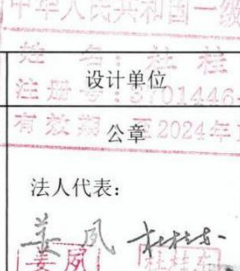 中华人民共和国一级
姓 名：杜 桂
设计单位
注册号：3701446
有效期：至2024年1
公章
法人代表：
姜 凤 杜桂东
姜凤 杜桂东